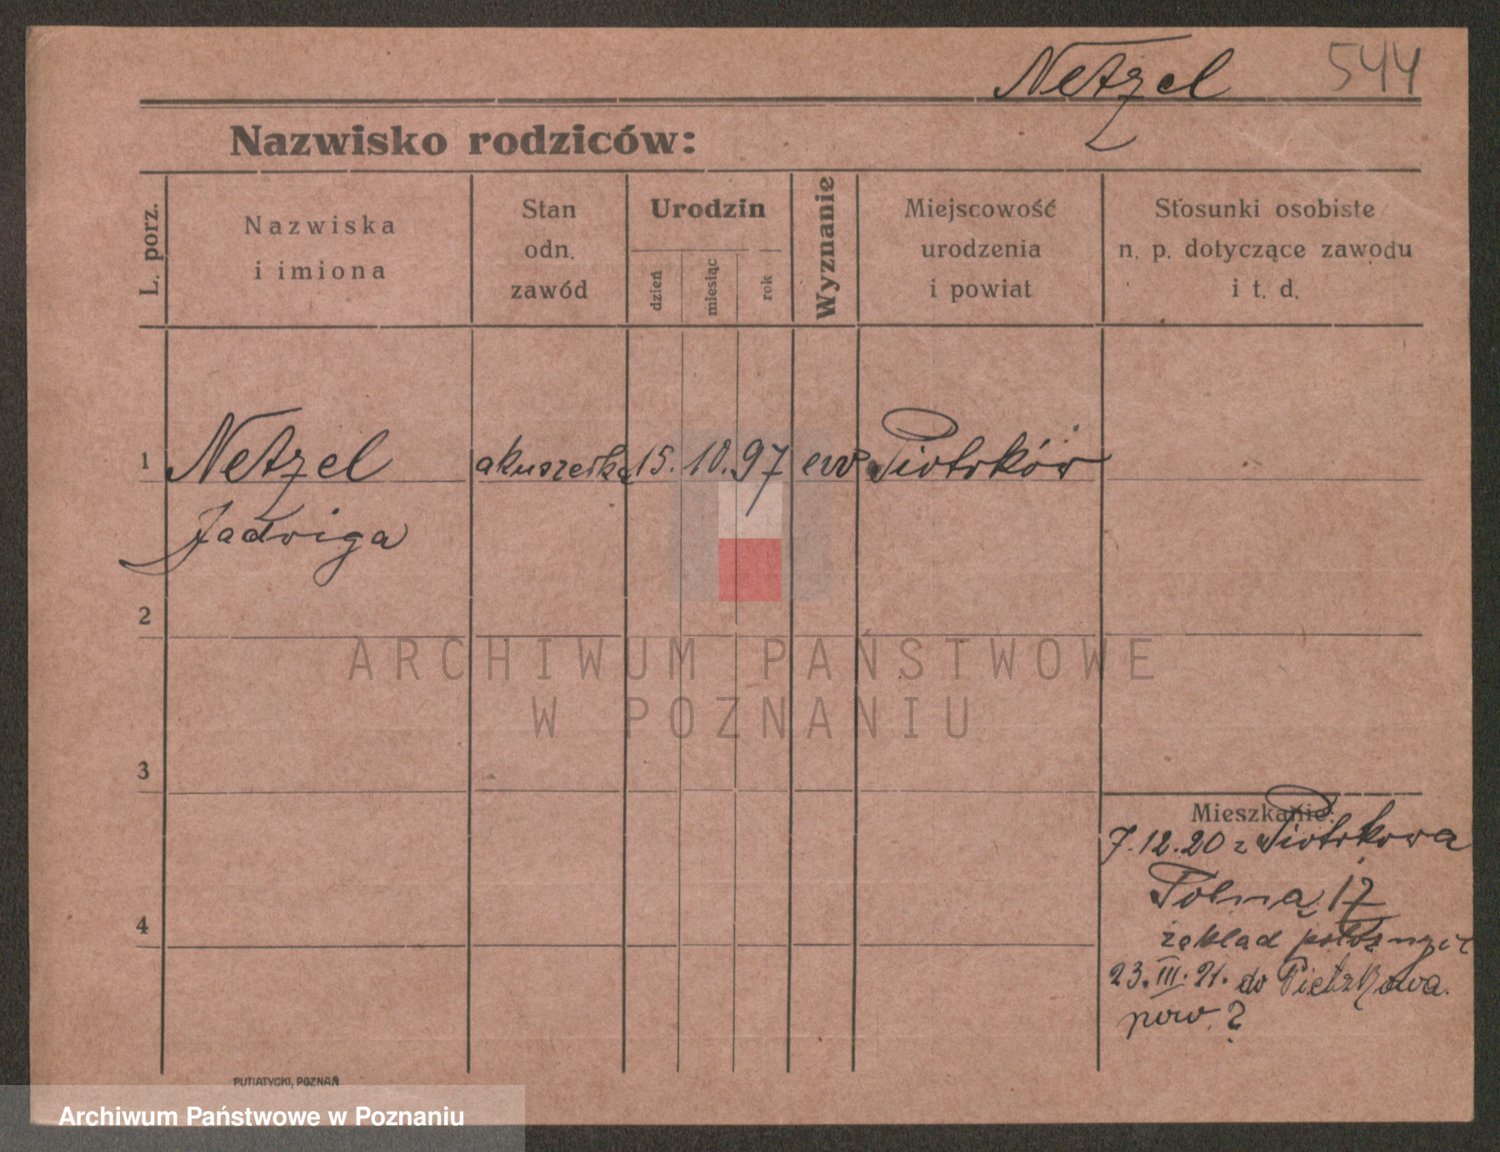 Netzel 544
Nazwisko rodziców:
L. porz.
Nazwiska
i imiona
Stan
odn.
zawód
Urodzin
dzień
miesiąc
rok
Wyznanie
Miejscowość
urodzenia
i powiat
Stosunki osobiste
n. p. dotyczące zawodu
i t. d.
1 Netzel akuszerka 15. 10. 97 ew Piotrków
Jadwiga
2
ARCHIWUM PAŃSTWOWE
W POZNANIU
3
Mieszkanie:
7.12.20 z Piotrkowa
Polna 17
zakład
4
23.III.21. do Pietrzkowa.
pow. ?
PUTIATYCKI, POZNAŃ
Archiwum Państwowe w Poznaniu